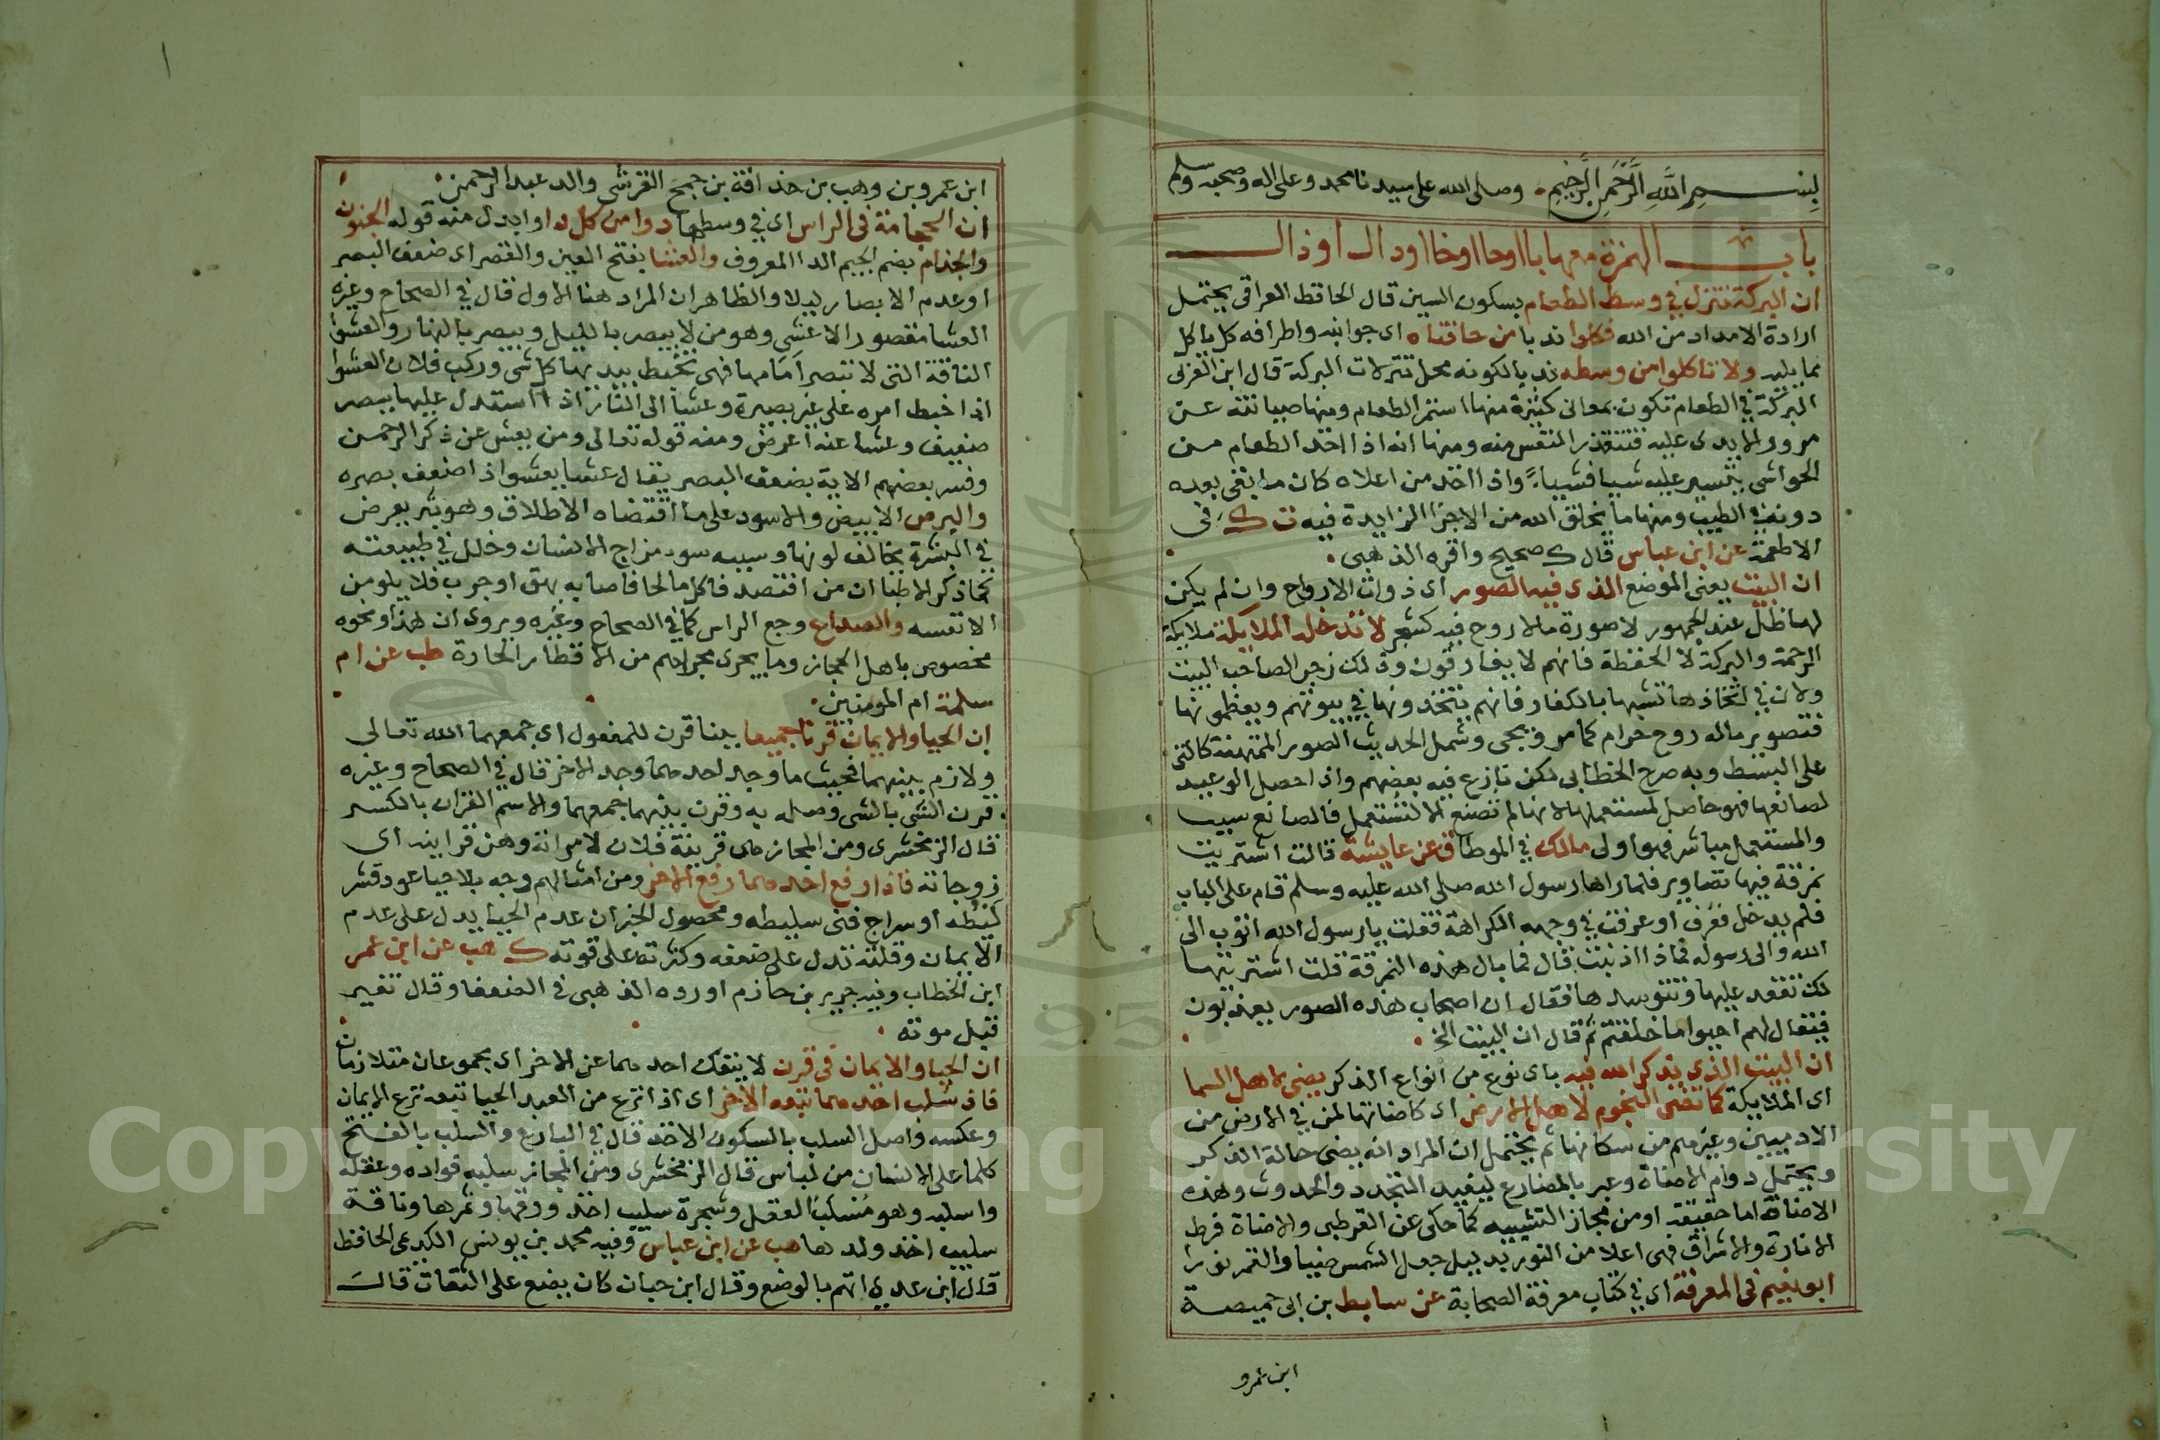 بسم الله الرحمن الرحيم. وصلى الله على سيدنا محمد وعلى اله وصحبه وسلم
باب الهمزة معها باا اوحاا اوخاا اودال اوذال
ان البركة تنزل في وسط الطعام بسكون السين قال الحافظ العراقي يحتمل
ارادة الامداد من الله فكلوا ندبا من حافتاه اى جوانبه واطرافه كل ياكل
مما يليه ولا تاكلوا من وسطه ندبا لكونه محل تنزلات البركة قال ابن العربى
البركة في الطعام تكون بمعانى كثيرة منها استمرا الطعام ومنها صيانته عن
مرور الايدى عليه فتتقذر النفس منه ومنها انه اذا اخذ الطعام من
الحواشى يتيسر عليه شيا فشياء واذا اخذ من اعلاه كان ما بقى بعده
دونه في الطيب ومنها ما يخلق الله من الاجزا الزايدة فيه ت ك فى
الاطعمة عن ابن عباس قال ك صحيح واقره الذهبى.
ان البيت يعنى الموضع الذى فيه الصور اى ذوات الارواح وان لم يكن
لها ظل عند الجمهور لا صورة مالا روح فيه كشجر لا تدخله الملايكة ملايكة
الرحمة والبركة لا الحفظة فانهم لا يفارقون وذلك زجر الصاحب البيت
ولان في اتخاذها تشبها بالكفار فانهم يتخذونها في بيوتهم ويعظمونها
فتصوير ماله روح حرام كما مر ويجى وشمل الحديث الصور الممتهنة كالتى
على البسط وبه صرح الخطابى لكن نازع فيه بعضهم واذا حصل الوعيد
لصانعها فهو حاصل لمستعملها لانها لم تصنع الا لتستعمل فالصانع سبب
والمستعمل مباشر فهو اولى مالك في الموطا ق عن عايشة قالت اشتريت
نمرقة فيها تصاوير فلما راها رسول الله صلى الله عليه وسلم قام على الباب
فلم يدخل فعرف او عرفت في وجهه الكراهة فقلت يا رسول الله اتوب الى
الله والى رسوله فماذا اذنبت قال فما بال هذه النمرقة قلت اشتريتها
لك تقعد عليها وتتوسدها فقال ان اصحاب هذه الصور يعذبون
فيقال لهم احيوا ما خلقتم ثم قال ان البيت الخ.
ان البيت الذى يذكر الله فيه باى نوع من انواع الذكر يضى لاهل السما
اى الملايكة كما تضى النجوم لاهل الارض اى كاضاتها لمن في الارض من
الادميين وغيرهم من سكانها ثم يحتمل ان المراد انه يضى حالة الذكر
ويحتمل دوام الاضاة وعبر بالمضارع ليفيد التجدد والحدوث وهذه
الاضاة اما حقيقة او من مجاز التشبيه كما حكى عن القرطبى والاضاة فرط
الانارة والاشراق فهى اعلا من النور بدليل جعل الشمس ضيا والقمر نورا
ابو نعيم فى المعرفة اى في كتاب معرفة الصحابة عن سابط بن ابى حميصة
ابن عمرو
ابن عمرو بن وهب بن حذافة بن جمح القرشى والد عبد الرحمن.
ان الحجامة فى الراس اى في وسطها دوا من كل دا وابدل منه قوله الجنون
والجذام بضم الجيم الدا المعروف والعشا بفتح العين والقصر اى ضعف البصر
او عدم الابصار ليلا والظاهر ان المراد هنا الاول قال في الصحاح وغيره
العشا مقصور الاعشى وهو من لا يبصر بالليل ويبصر بالنهار والعشوا
الناقة التى لا تبصر امامها فهى تخبط بيديها كل شى وركب فلان العشوا
اذا خبط امره على غير بصيرة وعشا الى النار اذا استدل عليها ببصر
ضعيف وعشا عنه اعرض ومنه قوله تعالى ومن يعش عن ذكر الرحمن
وفسر بعضهم الاية بضعف البصر يقال عشا يعشو اذا ضعف بصره
والبرص الابيض والاسود على ما اقتضاه الاطلاق وهو بثر يعرض
في البشرة يخالف لونها وسببه سو مزاج الانسان وخلل في طبيعته
كما ذكر الاطبا ان من افتصد فاكل مالحا فاصابه بهق او جرب فلا يلومن
الا نفسه والصداع وجع الراس كما في الصحاح وغيره ويروى ان هذا ونحوه
مخصوص باهل الحجاز وما يجرى مجراهم من الاقطار الحارة طب عن ام
سلمة ام المومنين.
ان الحيا والايمان قرنا جميعا ببنا قرن للمفعول اى جمعهما الله تعالى
ولازم بينهما فحيث ما وجد احدهما وجد الاخر قال في الصحاح وغيره
قرن الشى بالشى وصله به وقرن بينهما جمعهما والاسم القران بالكسر
قال الزمخشرى ومن المجاز هى قرينة فلان لامراته وهن قراينه اى
زوجاته فاذا رفع احدهما رفع الاخر ومن امثالهم وجه بلا حيا عود قشر
ليطه او سراج فنى سليطه ومحصول الخبر ان عدم الحيا يدل على عدم
الايمان وقلته تدل على ضعفه وكثرته على قوته ك هب عن ابن عمر
ابن الخطاب وفيه جرير بن حازم اورده الذهبى فى الضعفا وقال تغير
قبل موته.
ان الحيا والايمان فى قرن لا ينفك احدهما عن الاخر اى مجموعان متلازمان
فاذا سلب احدهما تبعه الاخر اى اذا نزع من العبد الحيا تبعه نزع الايمان
وعكسه واصل السلب بالسكون الاخذ قال في البارع والسلب بالفتح
كلما على الانسان من لباس قال الزمخشرى ومن المجاز سلبه فواده وعقله
واسلبه وهو مستلب العقل وشجرة سليب اخذ ورقها وثمرها وناقة
سليب اخذ ولدها هب عن ابن عباس وفيه محمد بن يونس الكديمى الحافظ
قال ابن عدي اتهم بالوضع وقال ابن حبان كان يضع على الثقات قال
Copyright © King Saud University